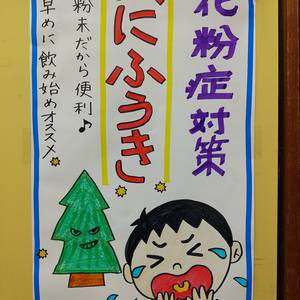 花粉症対策
にふうき
粉末だから便利♪
早めに飲み始めオススメ